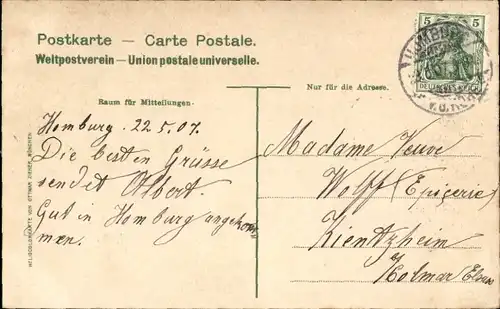 Postkarte — Carte Postale.
Weltpostverein — Union postale universelle.
Nur für die Adresse.
Raum für Mitteilungen.
Homburg. 22.5.07.
Die besten Grüsse
sendet Albert.
Gut in Homburg angekom
men.
Madame Veuve
Wolff (Epicerie)
Kientzheim
b/
Colmar Elsass
5 5
DEUTSCHES REICH
HOMBURG
v.d. HÖHE
HELIOCOLORKARTE VON OTTMAR ZIEHER, MÜNCHEN